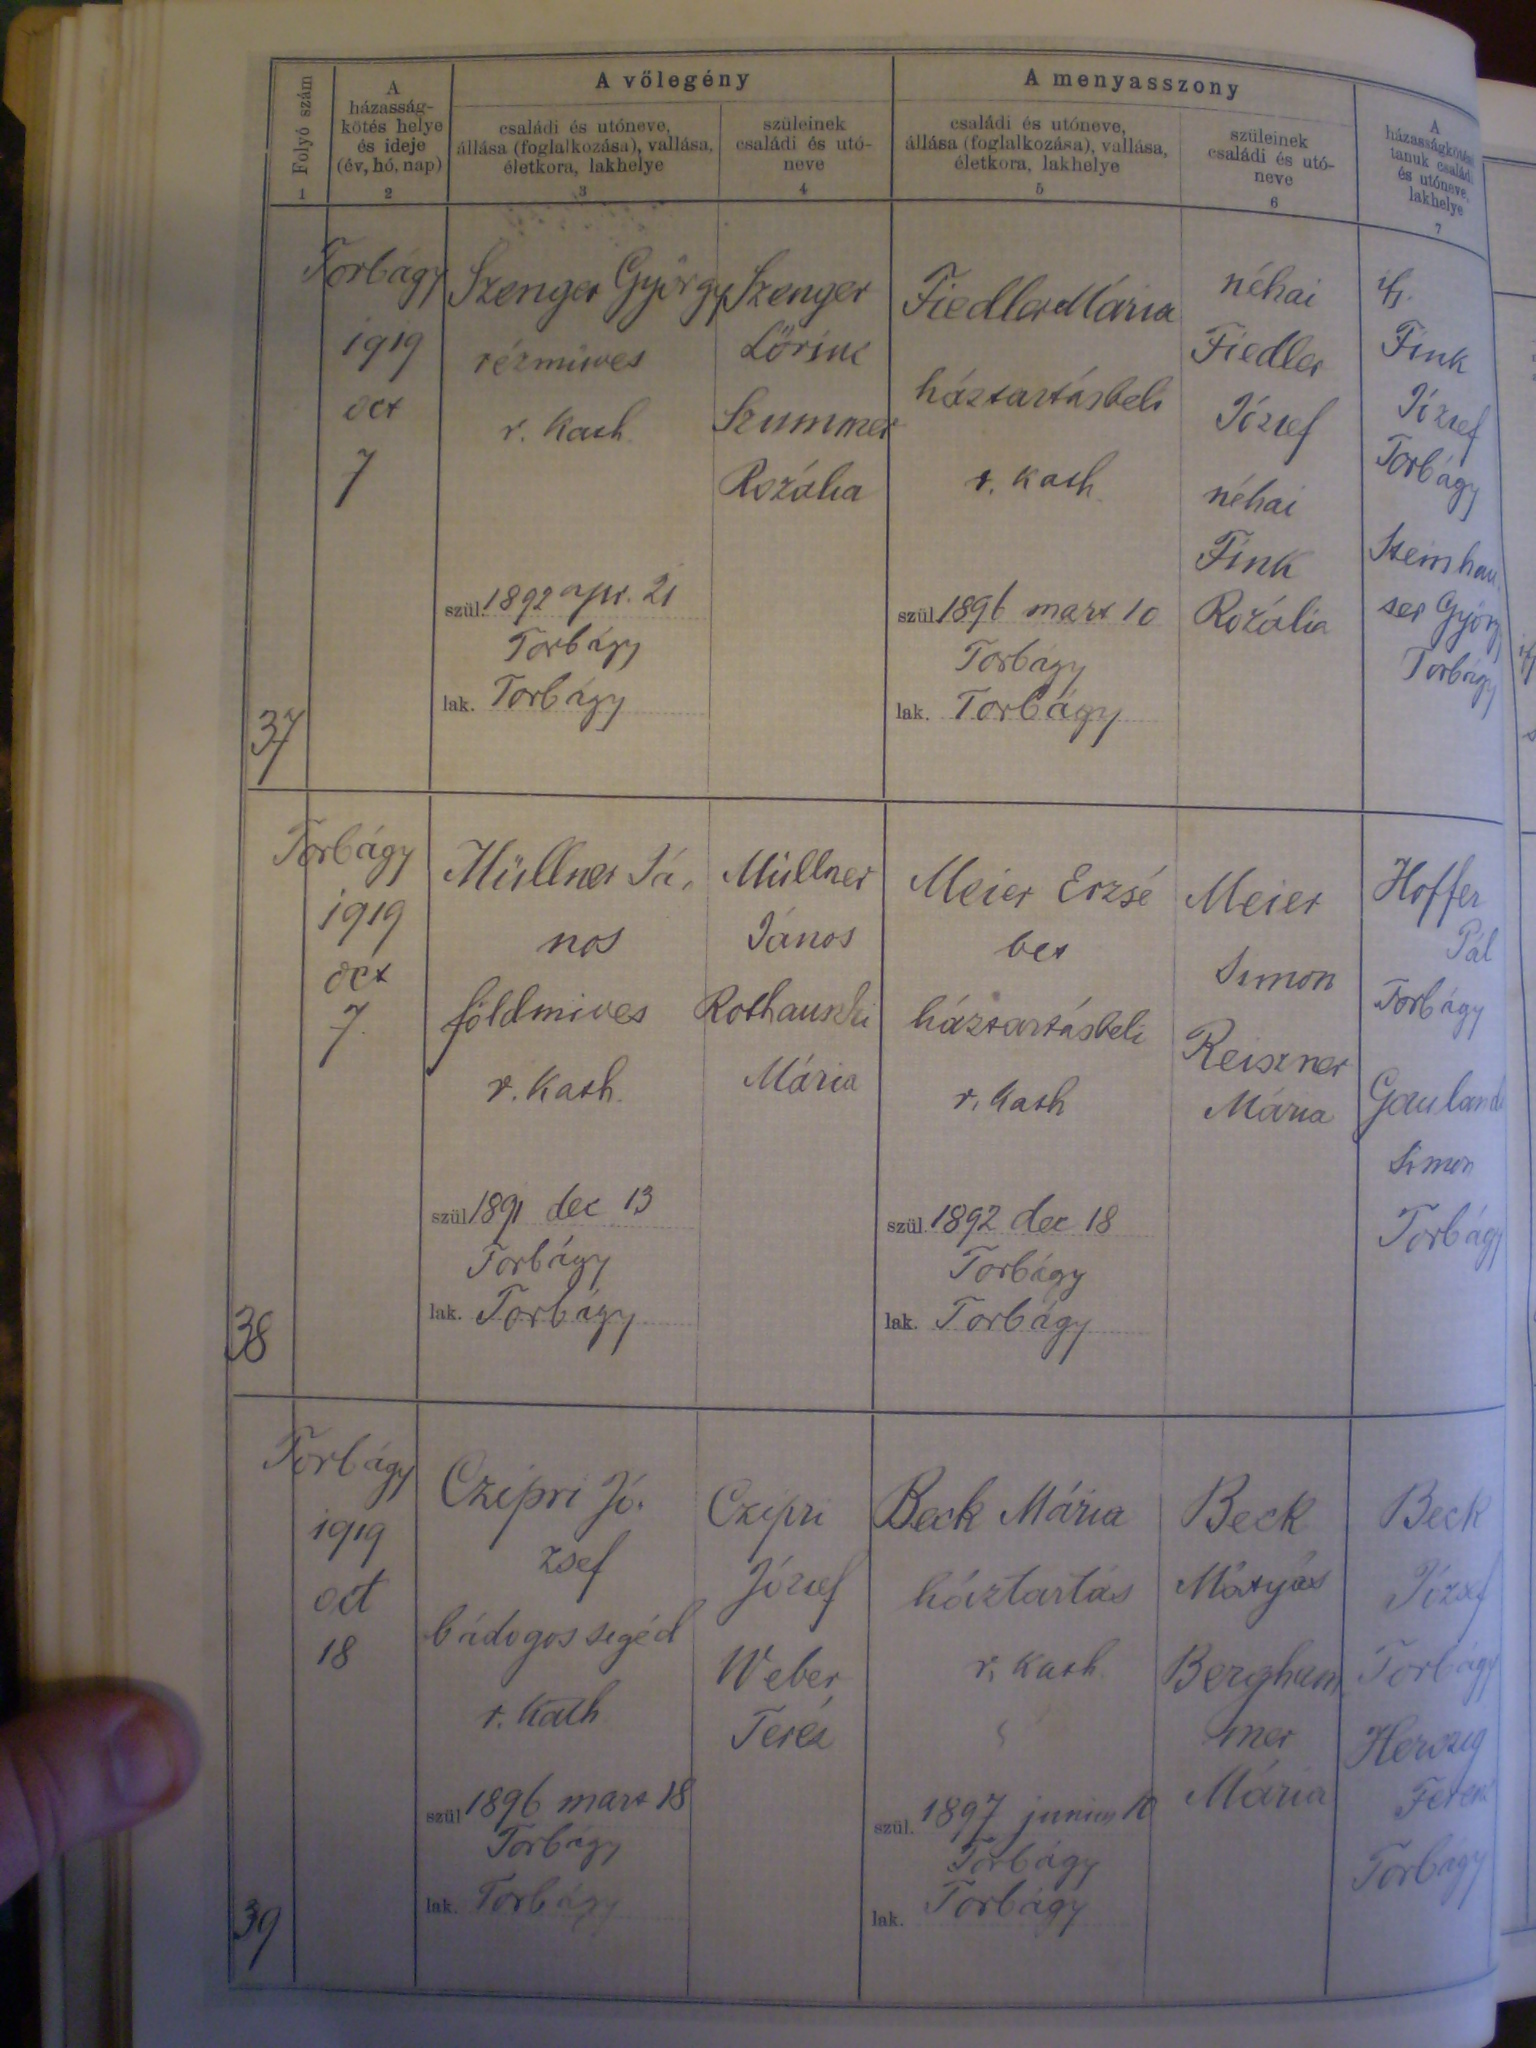 A vőlegény
A menyasszony
Folyó szám
A
házasság-
kötés helye
és ideje
(év, hó, nap)
családi és utóneve,
állása (foglalkozása), vallása,
életkora, lakhelye
szüleinek
családi és utó-
neve
családi és utóneve,
állása (foglalkozása), vallása,
életkora, lakhelye
szüleinek
családi és utó-
neve
A
házasságkötési
tanuk családi
és utóneve,
lakhelye
1
2
3
4
5
6
7
37
Torbágy
1919
oct
7
Szenger György
rézmüves
r. kath.
szül. 1892 apr. 21
Torbágy
lak. Torbágy
Szenger
Lőrinc
Szummer
Rozália
Fiedler Mária
háztartásbeli
r. kath.
szül. 1896 mart 10
Torbágy
lak. Torbágy
néhai
Fiedler
József
néhai
Fink
Rozália
ifj.
Fink
József
Torbágy
Steinhau-
ser György
Torbágy
38
Torbágy
1919
oct
7.
Müllner Já-
nos
földmives
r. kath.
szül. 1891 dec 13
Torbágy
lak. Torbágy
Müllner
János
Mária
Meier Erzsé
bet
háztartásbeli
r. kath
szül. 1892 dec 18
Torbágy
lak. Torbágy
Meier
Simon
Reiszner
Mária
Hoffer
Pál
Torbágy
Simon
Torbágy
39
Torbágy
1919
oct
18
Czipri Jó-
zsef
bádogos segéd
r. kath
szül. 1896 mart 18
Torbágy
lak. Torbágy
Czipri
József
Weber
Teréz
Beck Mária
háztartás
r. kath.
szül. 1897 junius 10
Torbágy
lak. Torbágy
Beck
Mátyás
Bergham
mer
Mária
Beck
József
Torbágy
Herczig
Ferenc
Torbágy